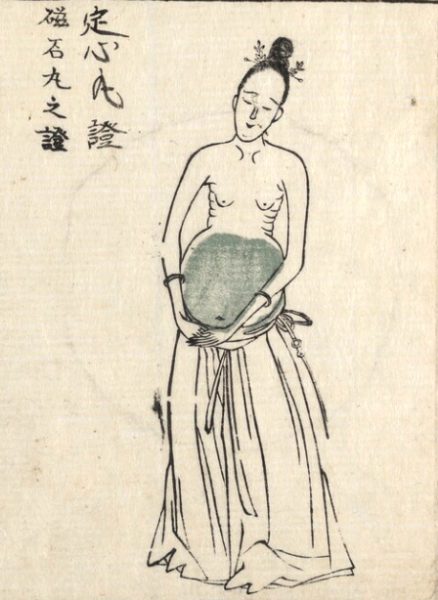 定心丸證
磁石丸之證